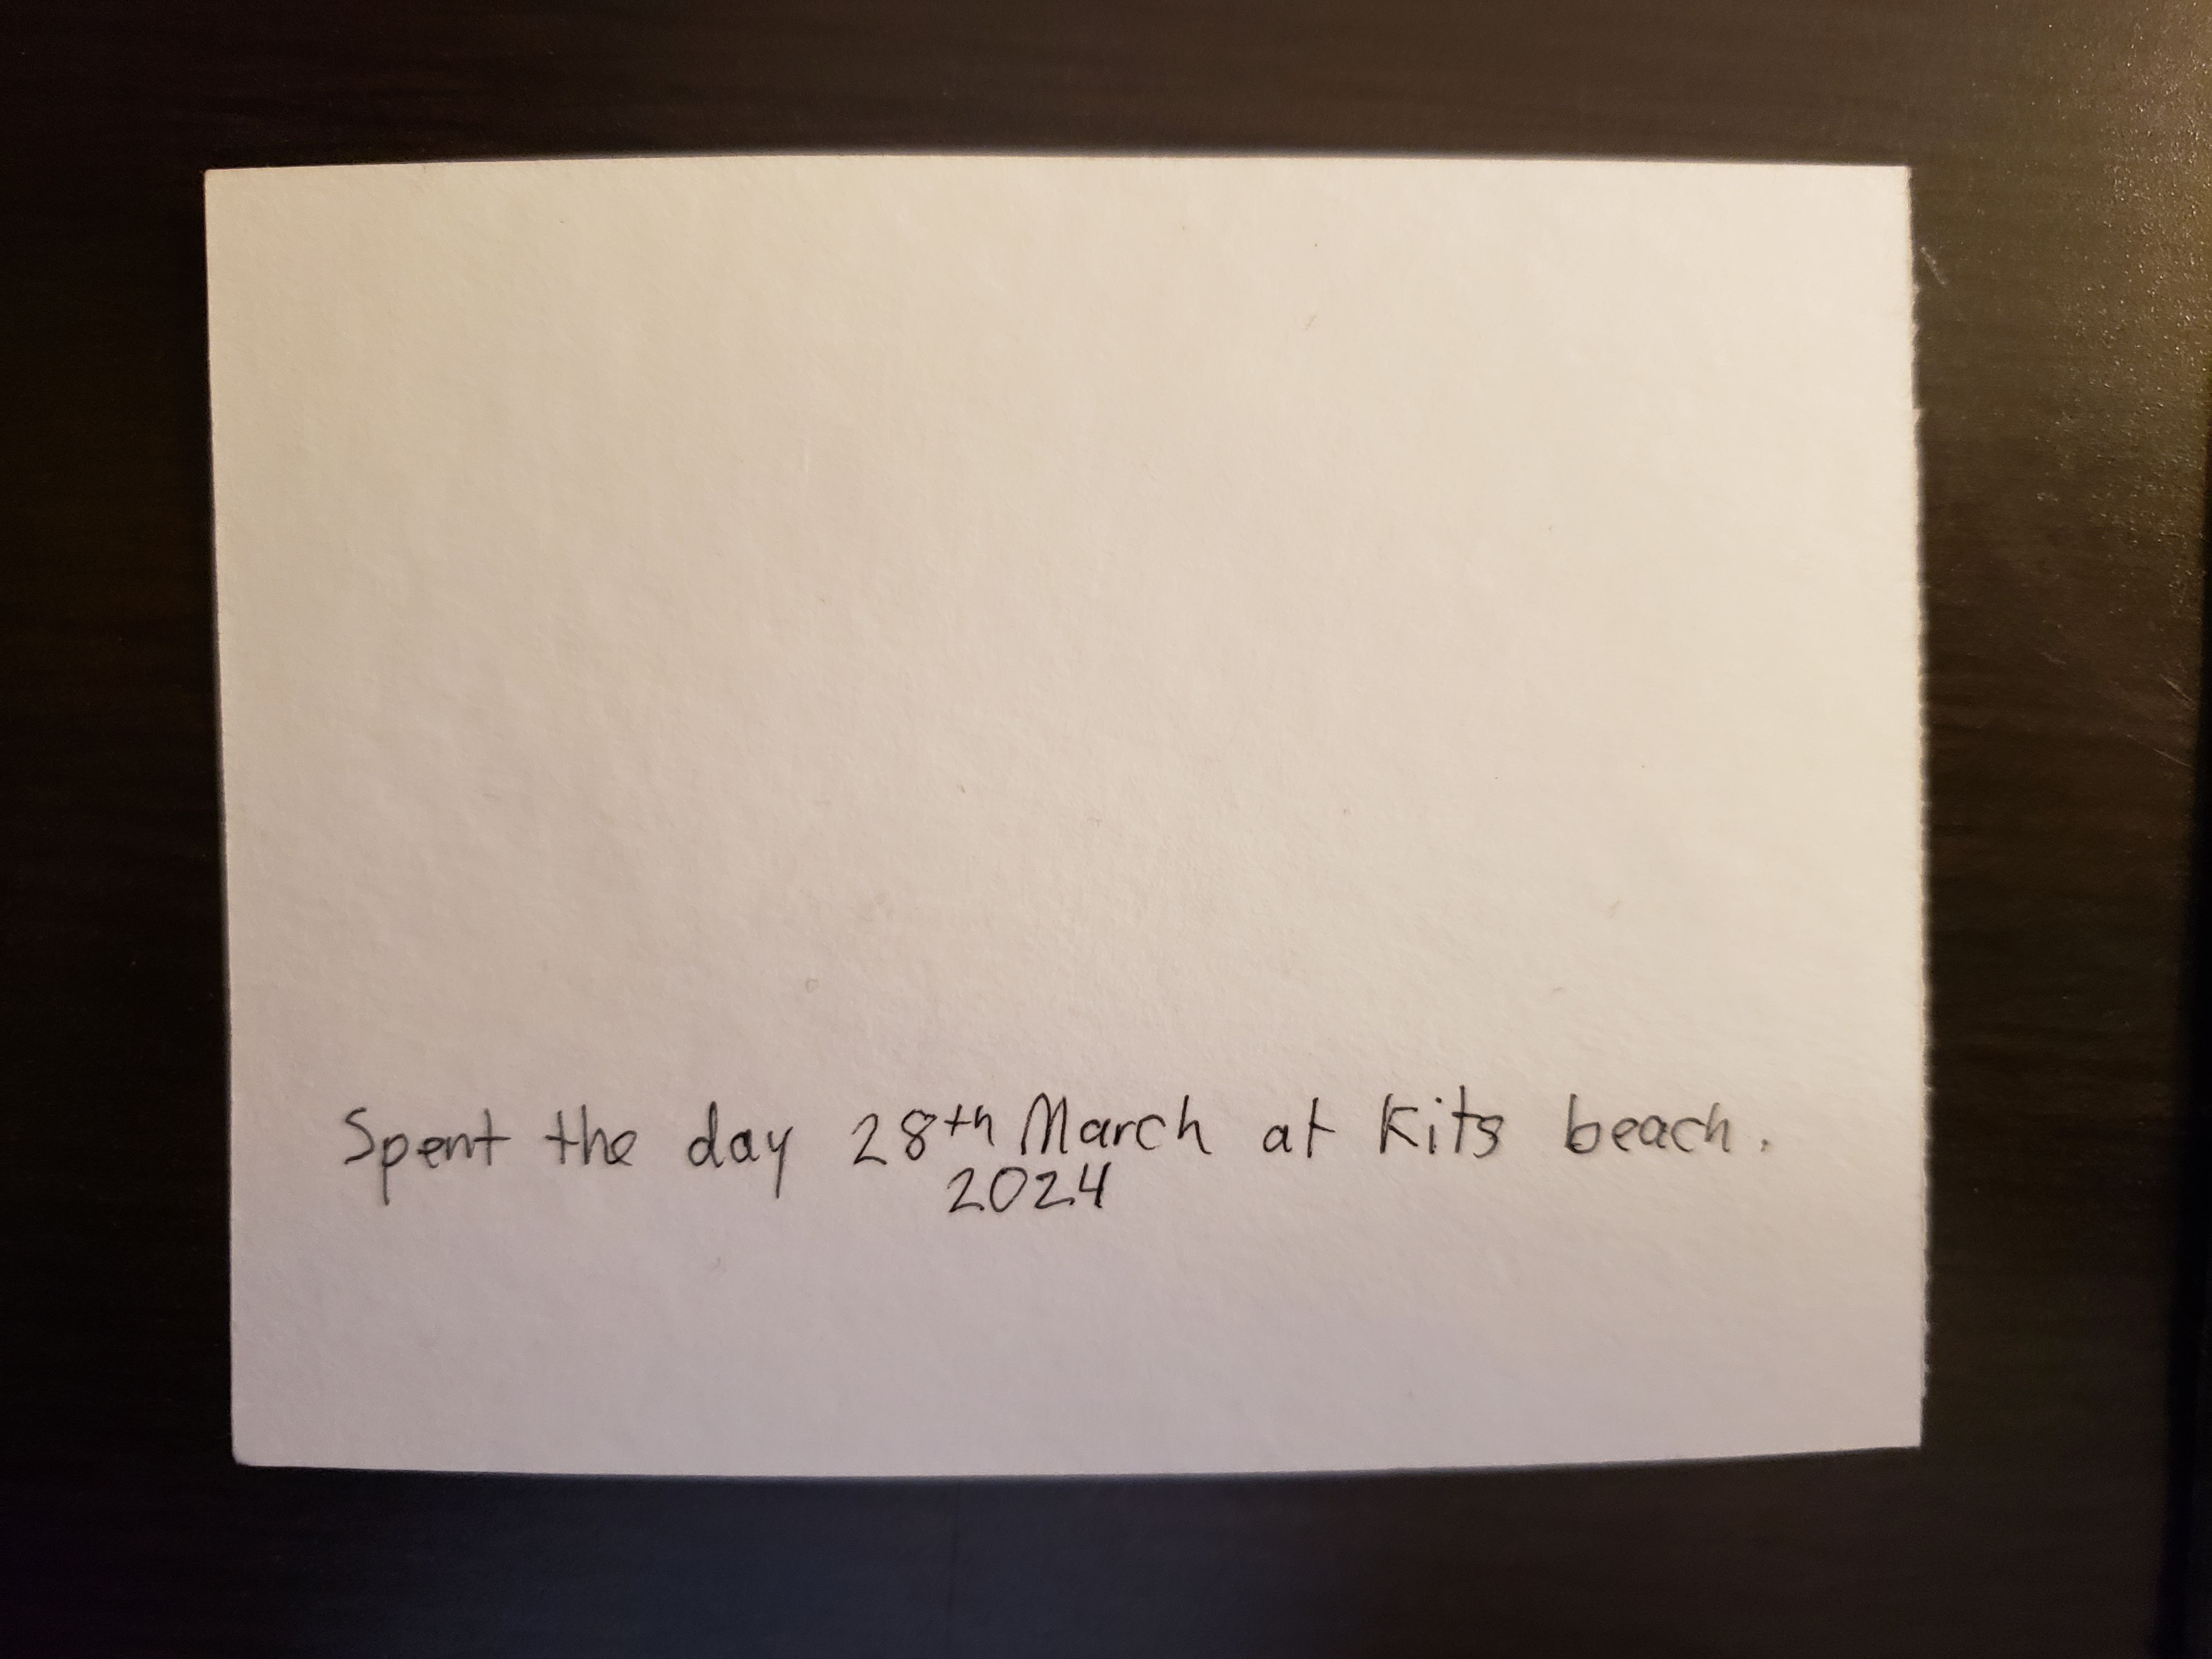 Spent the day 28th March at Kits beach.
2024